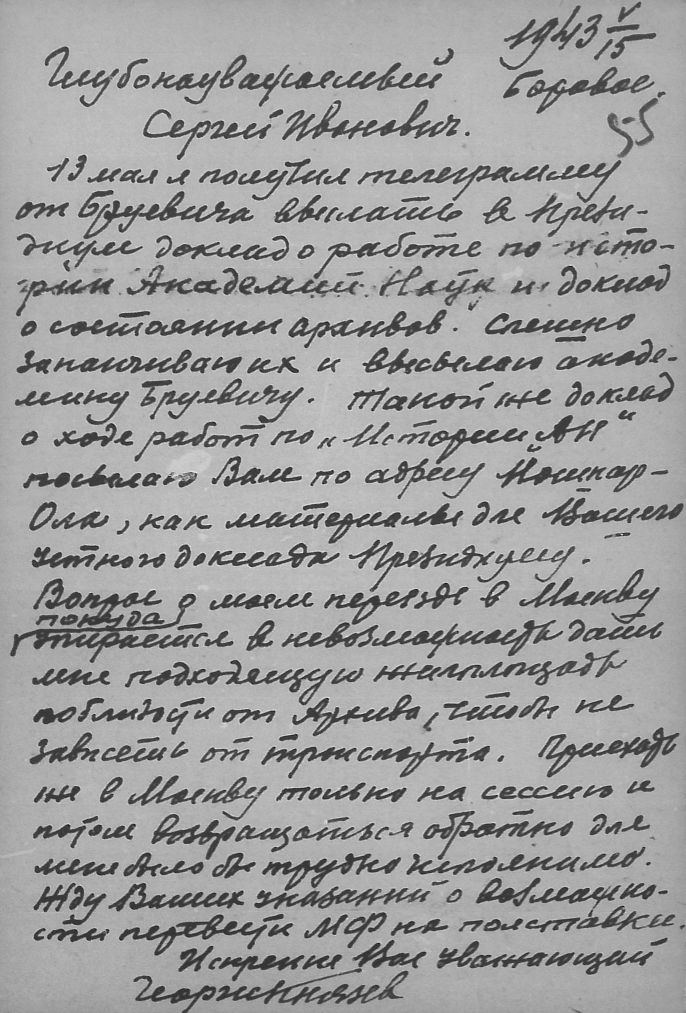 1943 V/15
Глубокоуважаемый Боровое.
55
Сергей Иванович.
13 мая я получил телеграмму
от Бруевича выслать в Прези-
диум доклад о работе по исто-
рии Академии Наук и доклад
о состоянии архивов. Спешно
заканчиваю их и высылаю акаде-
мику Бруевичу. Такой же доклад
о ходе работ по „Истории АН"
посылаю Вам по адресу Йошкар-
Ола, как материалы для Вашего
устного доклада Президиуму.
Вопрос о моем переезде в Москву
покуда
упирается в невозможность дать
мне подходящую жилплощадь
поблизости от Архива, чтобы не
зависеть от транспорта. Приехать
же в Москву только на сессию и
потом возвращаться обратно для
меня было бы трудно исполнимо.
Жду Ваших указаний о возможно-
сти перевести МФ на полставки.
Искренне Вас уважающий
Георг Князев